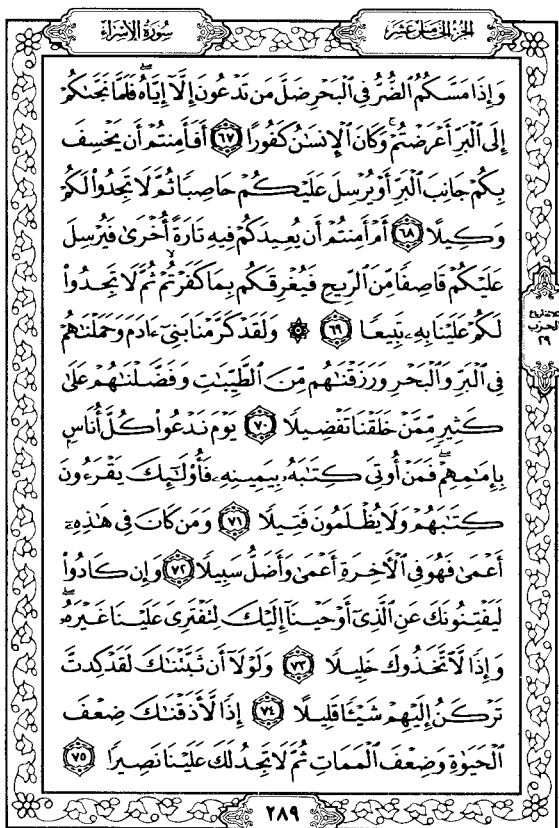 سُورَةُ الإِسْرَاءِ
الجُزْءُ الخَامِسُ عَشَرَ
وَإِذَا مَسَّكُمُ ٱلضُّرُّ فِى ٱلْبَحْرِ ضَلَّ مَن تَدْعُونَ إِلَّآ إِيَّاهُ ۖ فَلَمَّا نَجَّىٰكُمْ
إِلَى ٱلْبَرِّ أَعْرَضْتُمْ ۚ وَكَانَ ٱلْإِنسَٰنُ كَفُورًا ٦٧ أَفَأَمِنتُمْ أَن يَخْسِفَ
بِكُمْ جَانِبَ ٱلْبَرِّ أَوْ يُرْسِلَ عَلَيْكُمْ حَاصِبًا ثُمَّ لَا تَجِدُوا۟ لَكُمْ
وَكِيلًا ٦٨ أَمْ أَمِنتُمْ أَن يُعِيدَكُمْ فِيهِ تَارَةً أُخْرَىٰ فَيُرْسِلَ
عَلَيْكُمْ قَاصِفًا مِّنَ ٱلرِّيحِ فَيُغْرِقَكُم بِمَا كَفَرْتُمْ ۙ ثُمَّ لَا تَجِدُوا۟
لَكُمْ عَلَيْنَا بِهِۦ تَبِيعًا ٦٩ ۞ وَلَقَدْ كَرَّمْنَا بَنِىٓ ءَادَمَ وَحَمَلْنَٰهُمْ
فِى ٱلْبَرِّ وَٱلْبَحْرِ وَرَزَقْنَٰهُم مِّنَ ٱلطَّيِّبَٰتِ وَفَضَّلْنَٰهُمْ عَلَىٰ
كَثِيرٍ مِّمَّنْ خَلَقْنَا تَفْضِيلًا ٧٠ يَوْمَ نَدْعُوا۟ كُلَّ أُنَاسٍۭ
بِإِمَٰمِهِمْ ۖ فَمَنْ أُوتِىَ كِتَٰبَهُۥ بِيَمِينِهِۦ فَأُو۟لَٰٓئِكَ يَقْرَءُونَ
كِتَٰبَهُمْ وَلَا يُظْلَمُونَ فَتِيلًا ٧١ وَمَن كَانَ فِى هَٰذِهِۦٓ
أَعْمَىٰ فَهُوَ فِى ٱلْـَٔاخِرَةِ أَعْمَىٰ وَأَضَلُّ سَبِيلًا ٧٢ وَإِن كَادُوا۟
لَيَفْتِنُونَكَ عَنِ ٱلَّذِىٓ أَوْحَيْنَآ إِلَيْكَ لِتَفْتَرِىَ عَلَيْنَا غَيْرَهُۥ ۖ
وَإِذًا لَّٱتَّخَذُوكَ خَلِيلًا ٧٣ وَلَوْلَآ أَن ثَبَّتْنَٰكَ لَقَدْ كِدتَّ
تَرْكَنُ إِلَيْهِمْ شَيْـًٔا قَلِيلًا ٧٤ إِذًا لَّأَذَقْنَٰكَ ضِعْفَ
ٱلْحَيَوٰةِ وَضِعْفَ ٱلْمَمَاتِ ثُمَّ لَا تَجِدُ لَكَ عَلَيْنَا نَصِيرًا ٧٥
الحزب
٢٩
٢٨٩